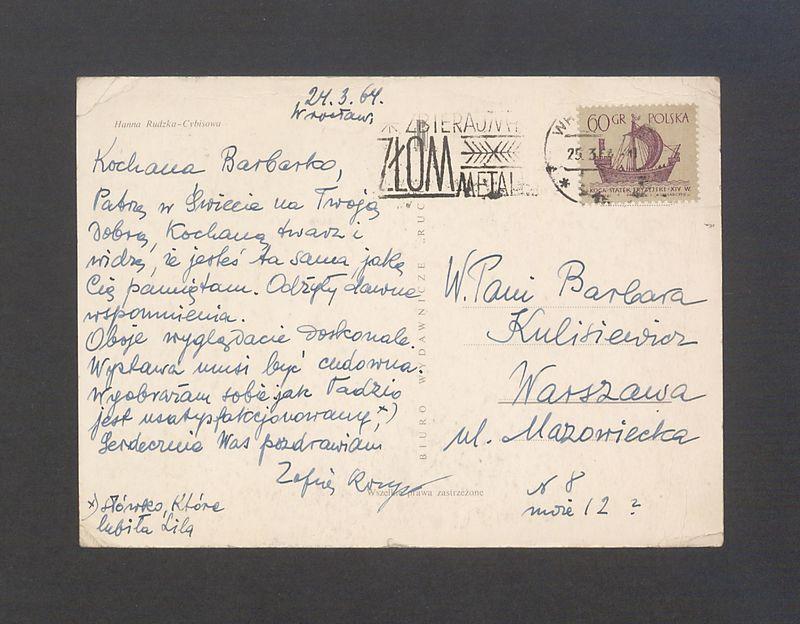 24.3.64.
Wrocław,
Hanna Rudzka-Cybisowa
Kochana Barbarko,
Patrzę w Świecie na Twoją
Dobrą, Kochaną twarz i
widzę, że jesteś ta sama, jaką
Cię pamiętam. Odżyły dawne
wspomnienia.
Oboje wyglądacie doskonale.
Wystawa musi być cudowna.
Wyobrażam sobie jak Tadzio
jest usatysfakcjonowany,x)
Serdecznie Was pozdrawiam
Zofia
x) słówko, które
lubiła Lila
BIURO WYDAWNICZE „RUCH
Wszelkie prawa zastrzeżone
ZBIERAJMY
ZŁOM
METALI
25.3.64
60 GR POLSKA
KOGA STATEK FRYZYJSKI-XIV W.
W. Pani Barbara
Kulisiewicz
Warszawa
ul. Mazowiecka
N 8
może 12 ?